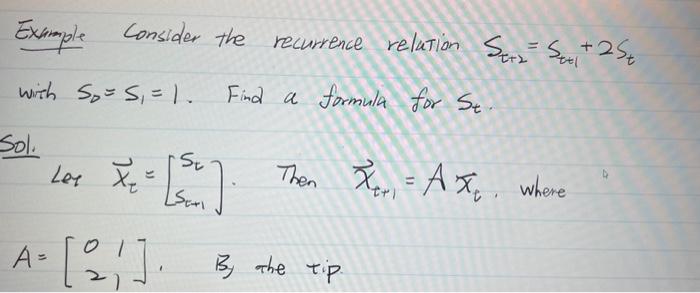 Example Consider the recurrence relation S_{t+2} = S_{t+1} + 2S_t
with S_0 = S_1 = 1. Find a formula for S_t.
Sol.
Let \vec{X}_t = \begin{bmatrix} S_t \\ S_{t+1} \end{bmatrix}. Then \vec{X}_{t+1} = A \vec{x}_t, where
A = \begin{bmatrix} 0 & 1 \\ 2 & 1 \end{bmatrix}. By the tip